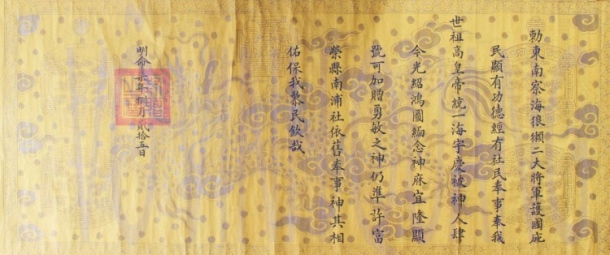 勅東南察海狼獺二大將軍護國庇
民顯有功德經有社民奉事奉我
世祖高皇帝統一海宇慶被神人肆
今光紹鴻圖緬念神庥宜隆顯
號可加贈勇敏之神仍準許富
榮縣南浦社依舊奉事神其相
佑保我黎民欽哉
明命年月貳拾五日